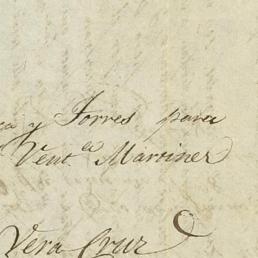 y Torres para
Vent.ª Martinez
Vera Cruz